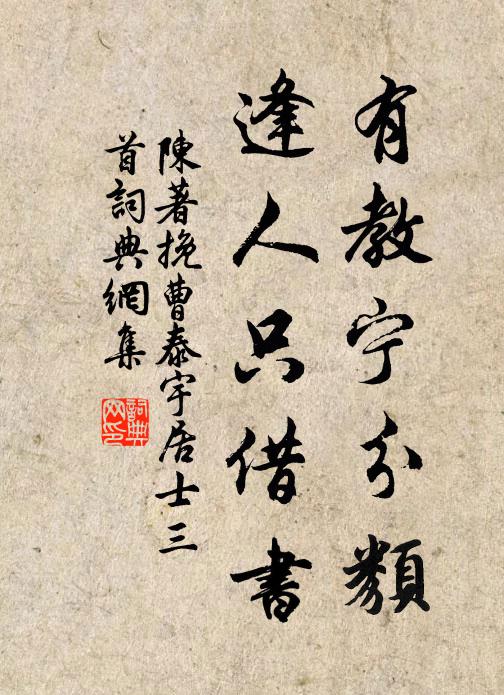 有教宁分類
逢人只借書
陳著挽曹泰宇居士三
首詞典網集
詞典
网印